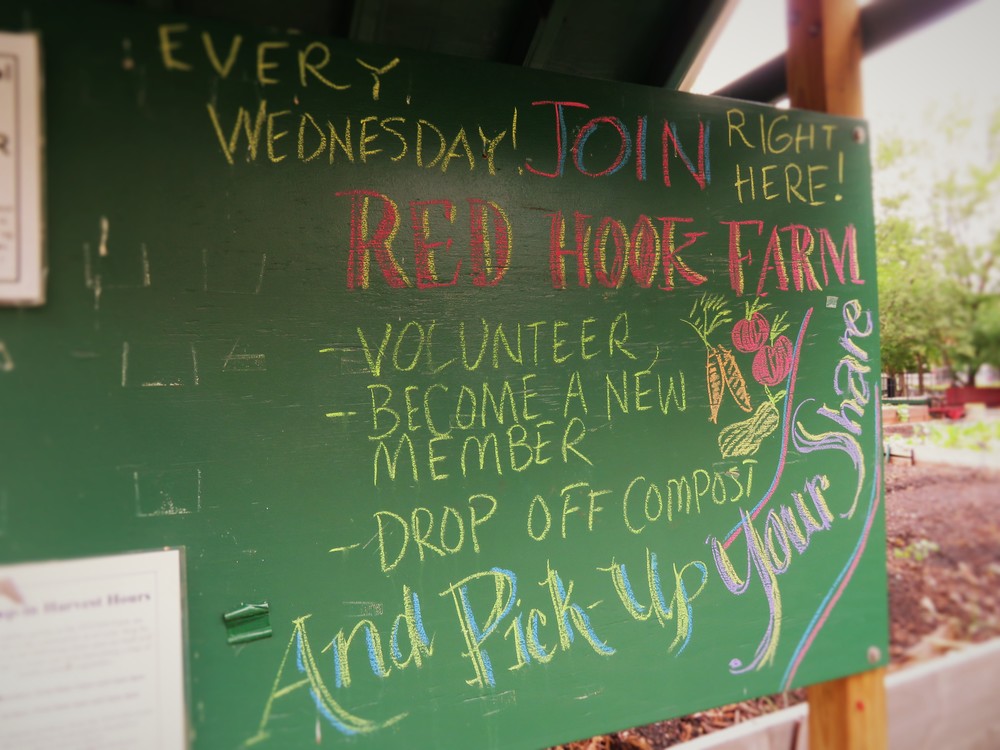 EVERY
WEDNESDAY! JOIN RIGHT
HERE!
RED HOOK FARM
- VOLUNTEER,
- BECOME A NEW
MEMBER
- DROP OFF COMPOST
And Pick Up Your Share
in Harvest Hours